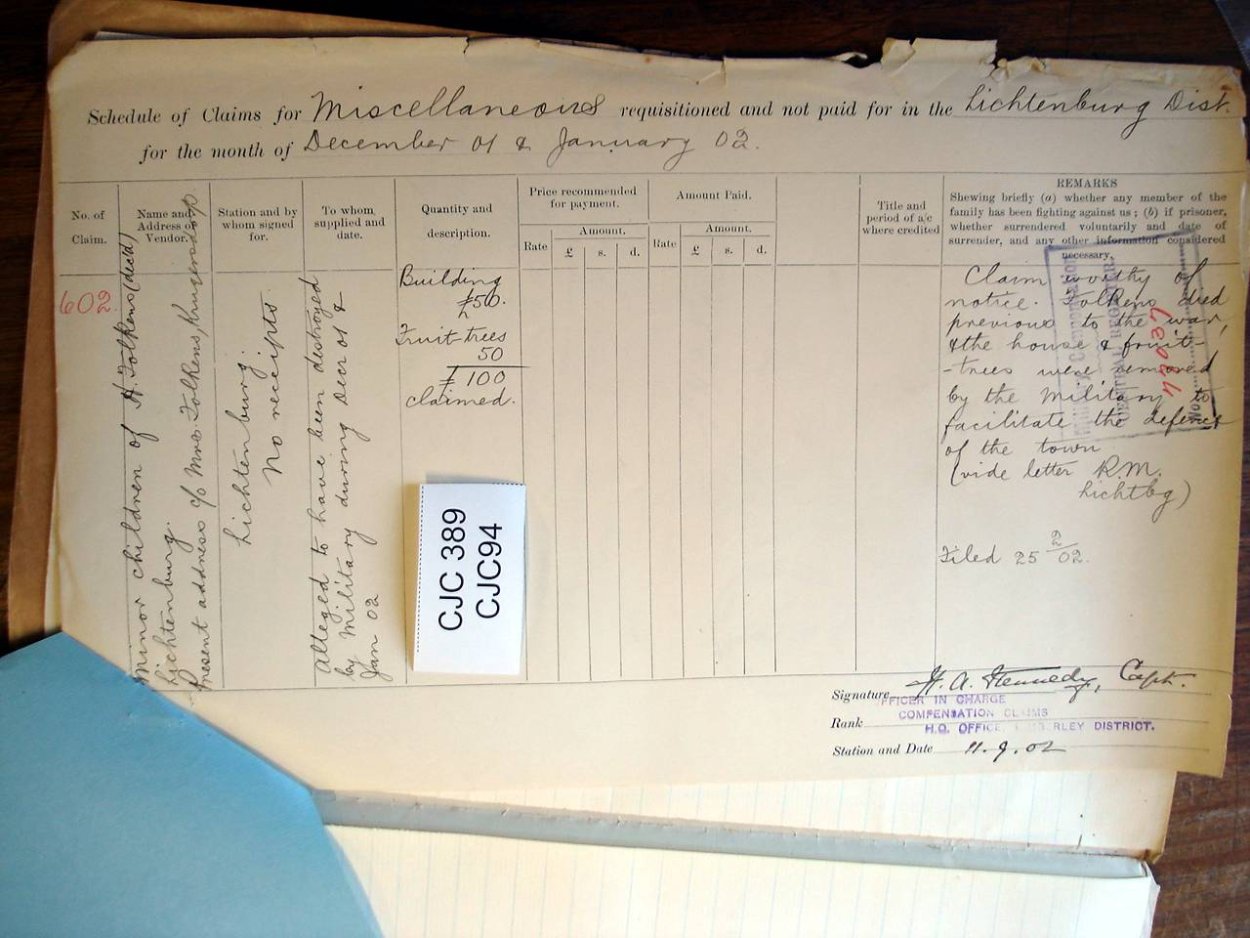 Schedule of Claims for Miscellaneous requisitioned and not paid for in the Lichtenburg Dist.
for the month of December 01 & January 02.
No. of Claim.
Name and Address of Vendor.
Station and by whom signed for.
To whom supplied and date.
Quantity and description.
Price recommended for payment.
Rate
Amount.
£ s. d.
Amount Paid.
Rate
Amount.
£ s. d.
Title and period of a/c where credited
REMARKS
Shewing briefly (a) whether any member of the
family has been fighting against us; (b) if prisoner,
whether surrendered voluntarily and date of
surrender, and any other information considered
necessary.
602
Minor children of H. Folkens (dec'd)
Lichtenburg.
Present address c/o Mrs Folkens, Krugersdorp
Lichtenburg.
No receipts.
Alleged to have been destroyed
by Military during Decr 01 &
Jan 02
Building
£50.
Fruit-trees
50
£ 100
claimed.
Claim worthy of
notice. Folkens died
previous to the war,
& the house & fruit-
-trees were removed
by the Military to
facilitate the defence
of the town
(vide letter R.M.
Lichtbg)
Filed 25 2/02.
CJC 389
CJC94
Signature H. A. Kennedy, Capt.
OFFICER IN CHARGE
COMPENSATION CLAIMS
Rank
H.Q. OFFICE DISTRICT.
Station and Date 11.9.02